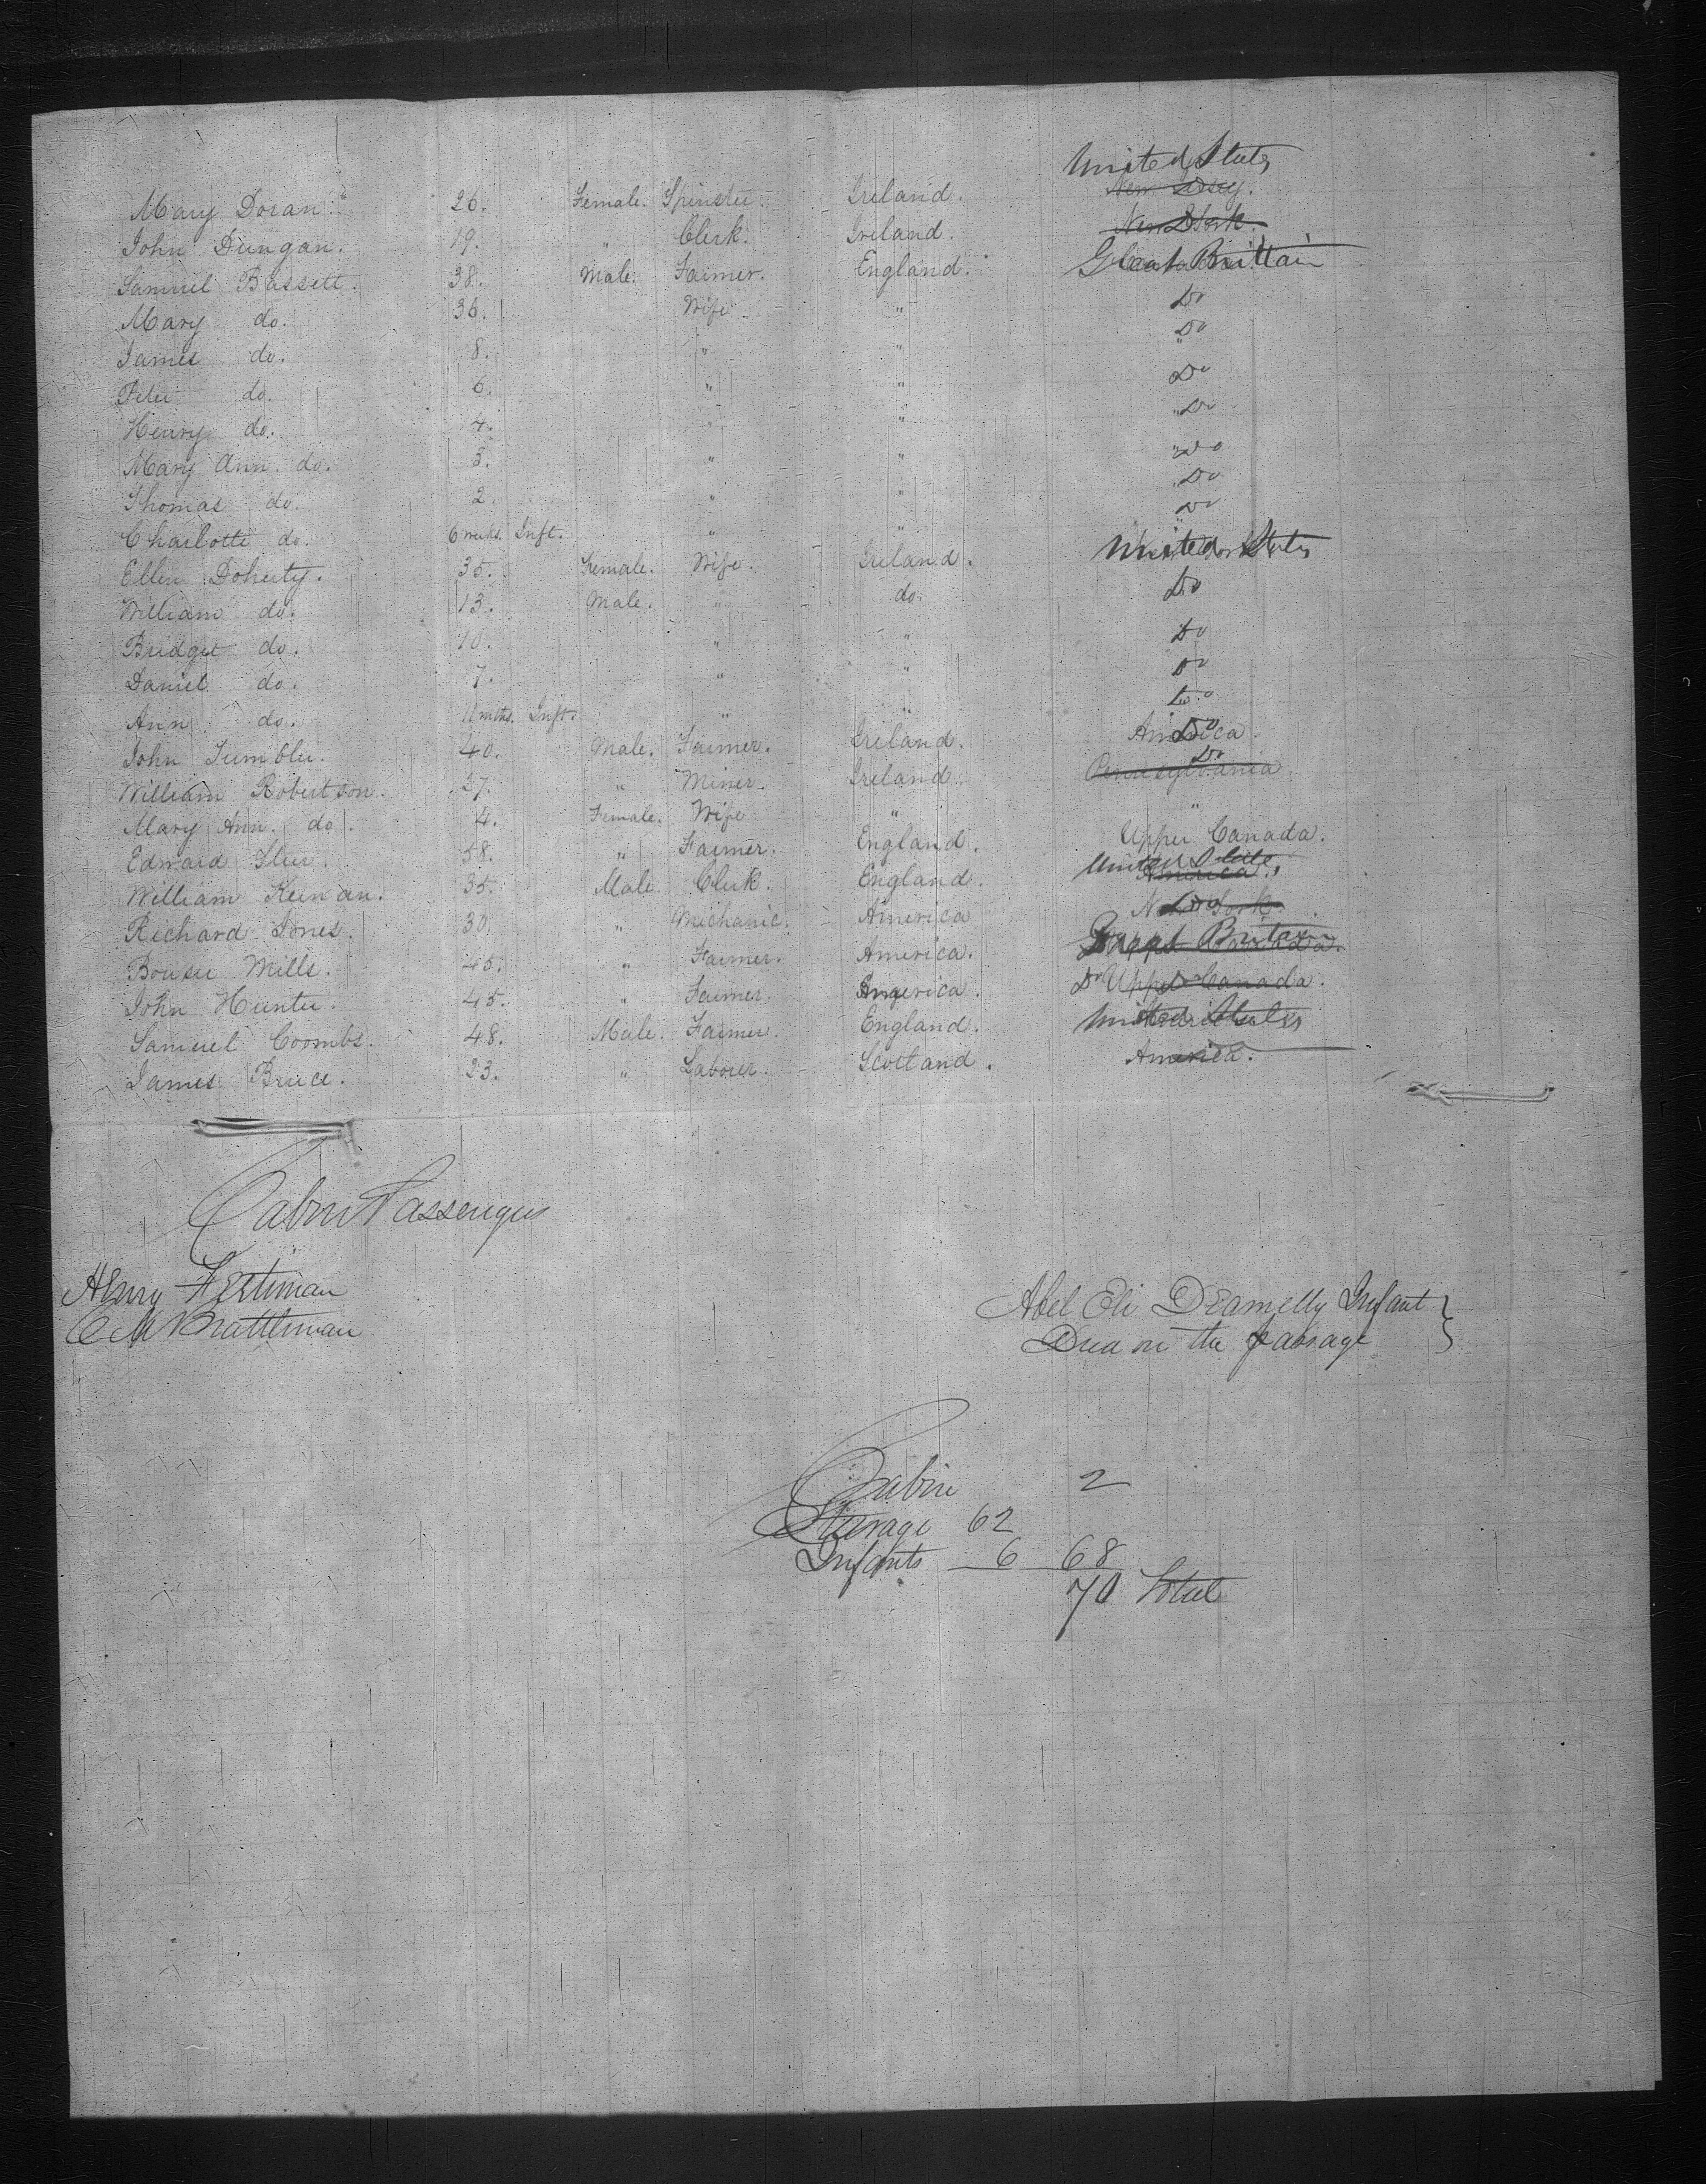 United States
Mary Doran. 26. Female. Spinster. Ireland. New Jersey.
John Dungan. 19. " Clerk. Ireland. New York. Do
Samuel Bassett. 38. Male. Farmer. England. Great Brittain
Mary do. 36. Wife " Do
James do. 8. " " Do
Peter do. 6. " " Do
Henry do. 4. " " Do
Mary Ann. do. 3. " " Do
Thomas do. 2. " " Do
Charlotte do. 6 weeks. Inft. " " Do
Ellen Doherty. 35. Female. Wife. Ireland. United States
William do. 13. Male. " do. Do
Bridget do. 10. " " Do
Daniel do. 7. " " Do
Ann do. 11 mths. Inft. " " Do
John Tumbler. 40. Male. Farmer. Ireland. America. Do
William Robertson. 27. " Miner. Ireland. Pennsylvania Do
Mary Ann. do. 4. Female. Wife " "
Edward 58. " Farmer. England. Upper Canada.
William Keenan. 35. Male. Clerk. England. United States America.
Richard Jones. 30. " Mechanic. America New York. Do
Mills. 45. " Farmer. America. Great Britain
John Hunter. 45. " Farmer. America. Do Upper Canada.
Samuel Coombs. 48. Male. Farmer. England. United States
James Bruce. 23. " Laborer. Scotland. America.
Cabin Passengers
Henry
Abel Eli Infant
Died on the passage
Cabin 2
Steerage 62
Infants 6 68
70 Total